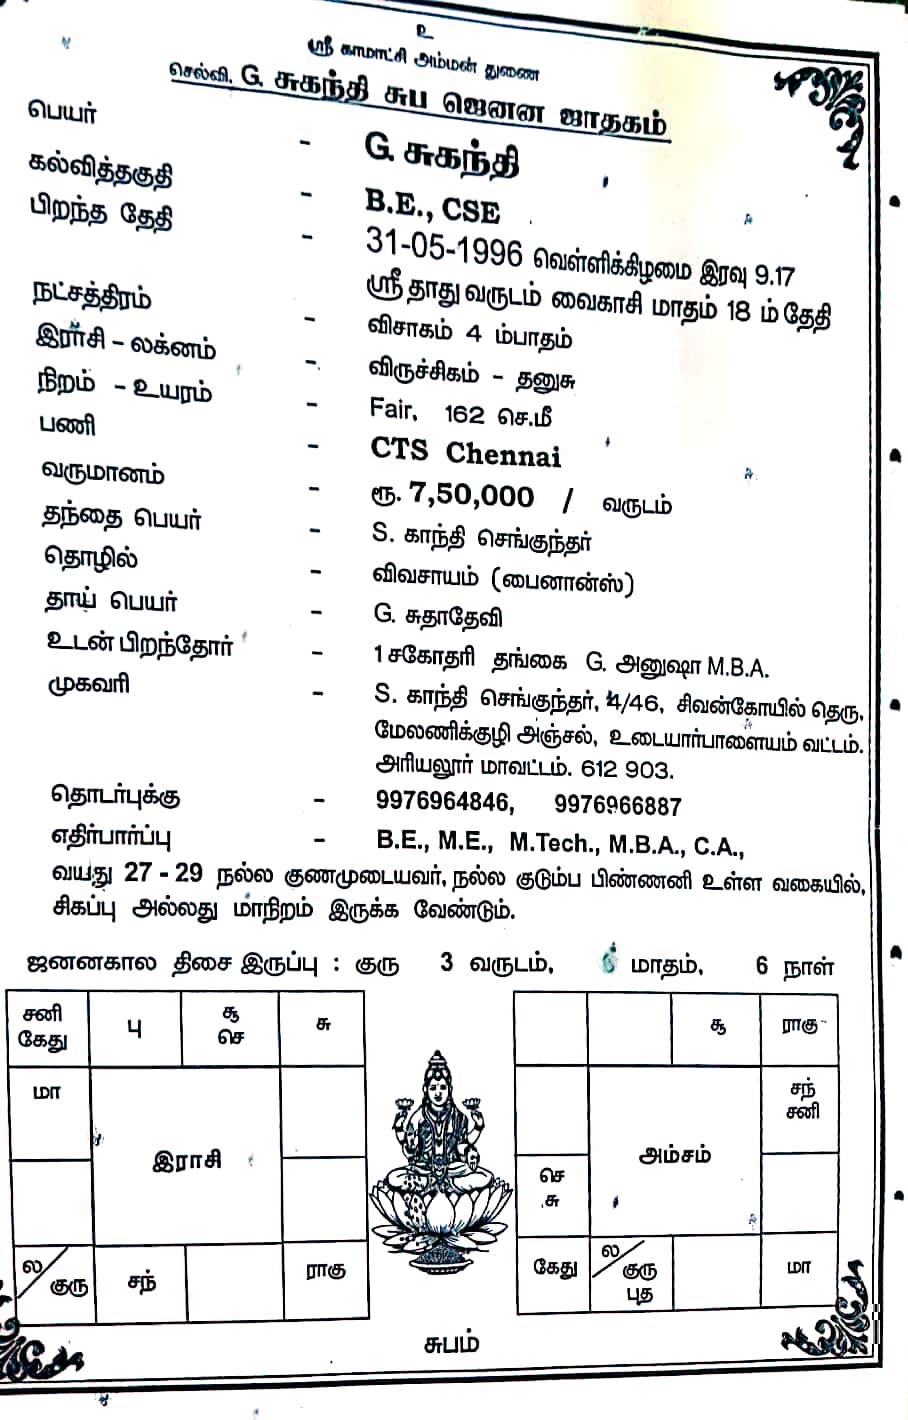 உ
ஸ்ரீ காமாட்சி அம்மன் துணை
செல்வி. G. சுகந்தி சுப ஜெனன ஜாதகம்
பெயர் - G. சுகந்தி
கல்வித்தகுதி - B.E., CSE
பிறந்த தேதி - 31-05-1996 வெள்ளிக்கிழமை இரவு 9.17
ஸ்ரீ தாது வருடம் வைகாசி மாதம் 18 ம் தேதி
நட்சத்திரம் - விசாகம் 4 ம்பாதம்
இராசி – லக்னம் - விருச்சிகம் – தனுசு
நிறம் – உயரம் - Fair, 162 செ.மீ
பணி - CTS Chennai
வருமானம் - ரூ. 7,50,000 / வருடம்
தந்தை பெயர் - S. காந்தி செங்குந்தர்
தொழில் - விவசாயம் (பைனான்ஸ்)
தாய் பெயர் - G. சுதாதேவி
உடன் பிறந்தோர் - 1 சகோதரி தங்கை G. அனுஷா M.B.A.
முகவரி - S. காந்தி செங்குந்தர், 4/46, சிவன்கோயில் தெரு,
மேலணிக்குழி அஞ்சல், உடையார்பாளையம் வட்டம்.
அரியலூர் மாவட்டம். 612 903.
தொடர்புக்கு - 9976964846, 9976966887
எதிர்பார்ப்பு - B.E., M.E., M.Tech., M.B.A., C.A.,
வயது 27 - 29 நல்ல குணமுடையவர், நல்ல குடும்ப பிண்ணனி உள்ள வகையில்,
சிகப்பு அல்லது மாநிறம் இருக்க வேண்டும்.
ஜனனகால திசை இருப்பு : குரு 3 வருடம், மாதம், 6 நாள்
சனி கேது
பு
சூ செ
சு
மா
இராசி
ல / குரு
சந்
ராகு
சூ
ராகு
சந் சனி
அம்சம்
செ சு
கேது
ல / குரு புத
மா
சுபம்